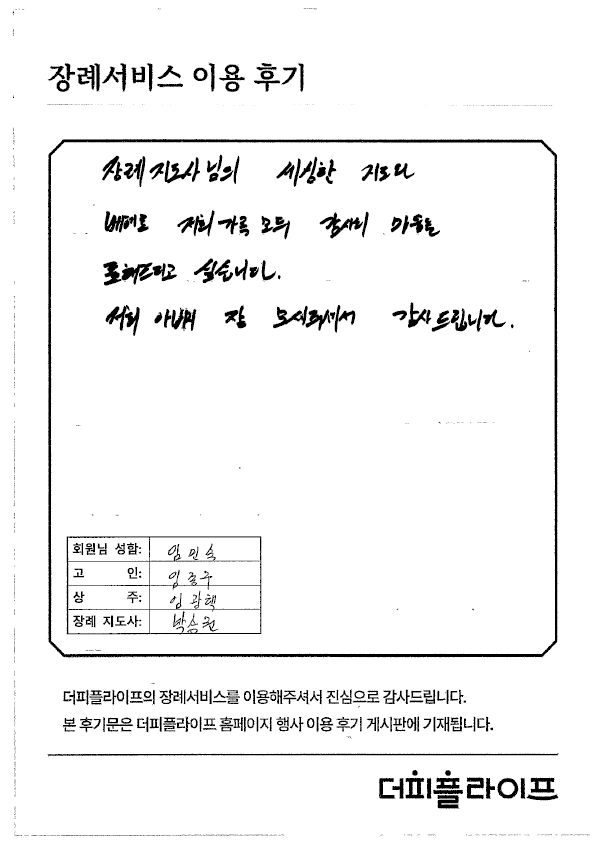 장례서비스 이용 후기
장례지도사님의 세심한 지도와
배려로 저희가족 모두 감사의 마음을
표해드리고 싶습니다.
저희 아버지 잘 모셔줘서 감사드립니다.
회원님 성함: 임민숙
고 인: 임종구
상 주: 임광택
장례 지도사: 박승권
더피플라이프의 장례서비스를 이용해주셔서 진심으로 감사드립니다.
본 후기문은 더피플라이프 홈페이지 행사 이용 후기 게시판에 기재됩니다.
더피플라이프